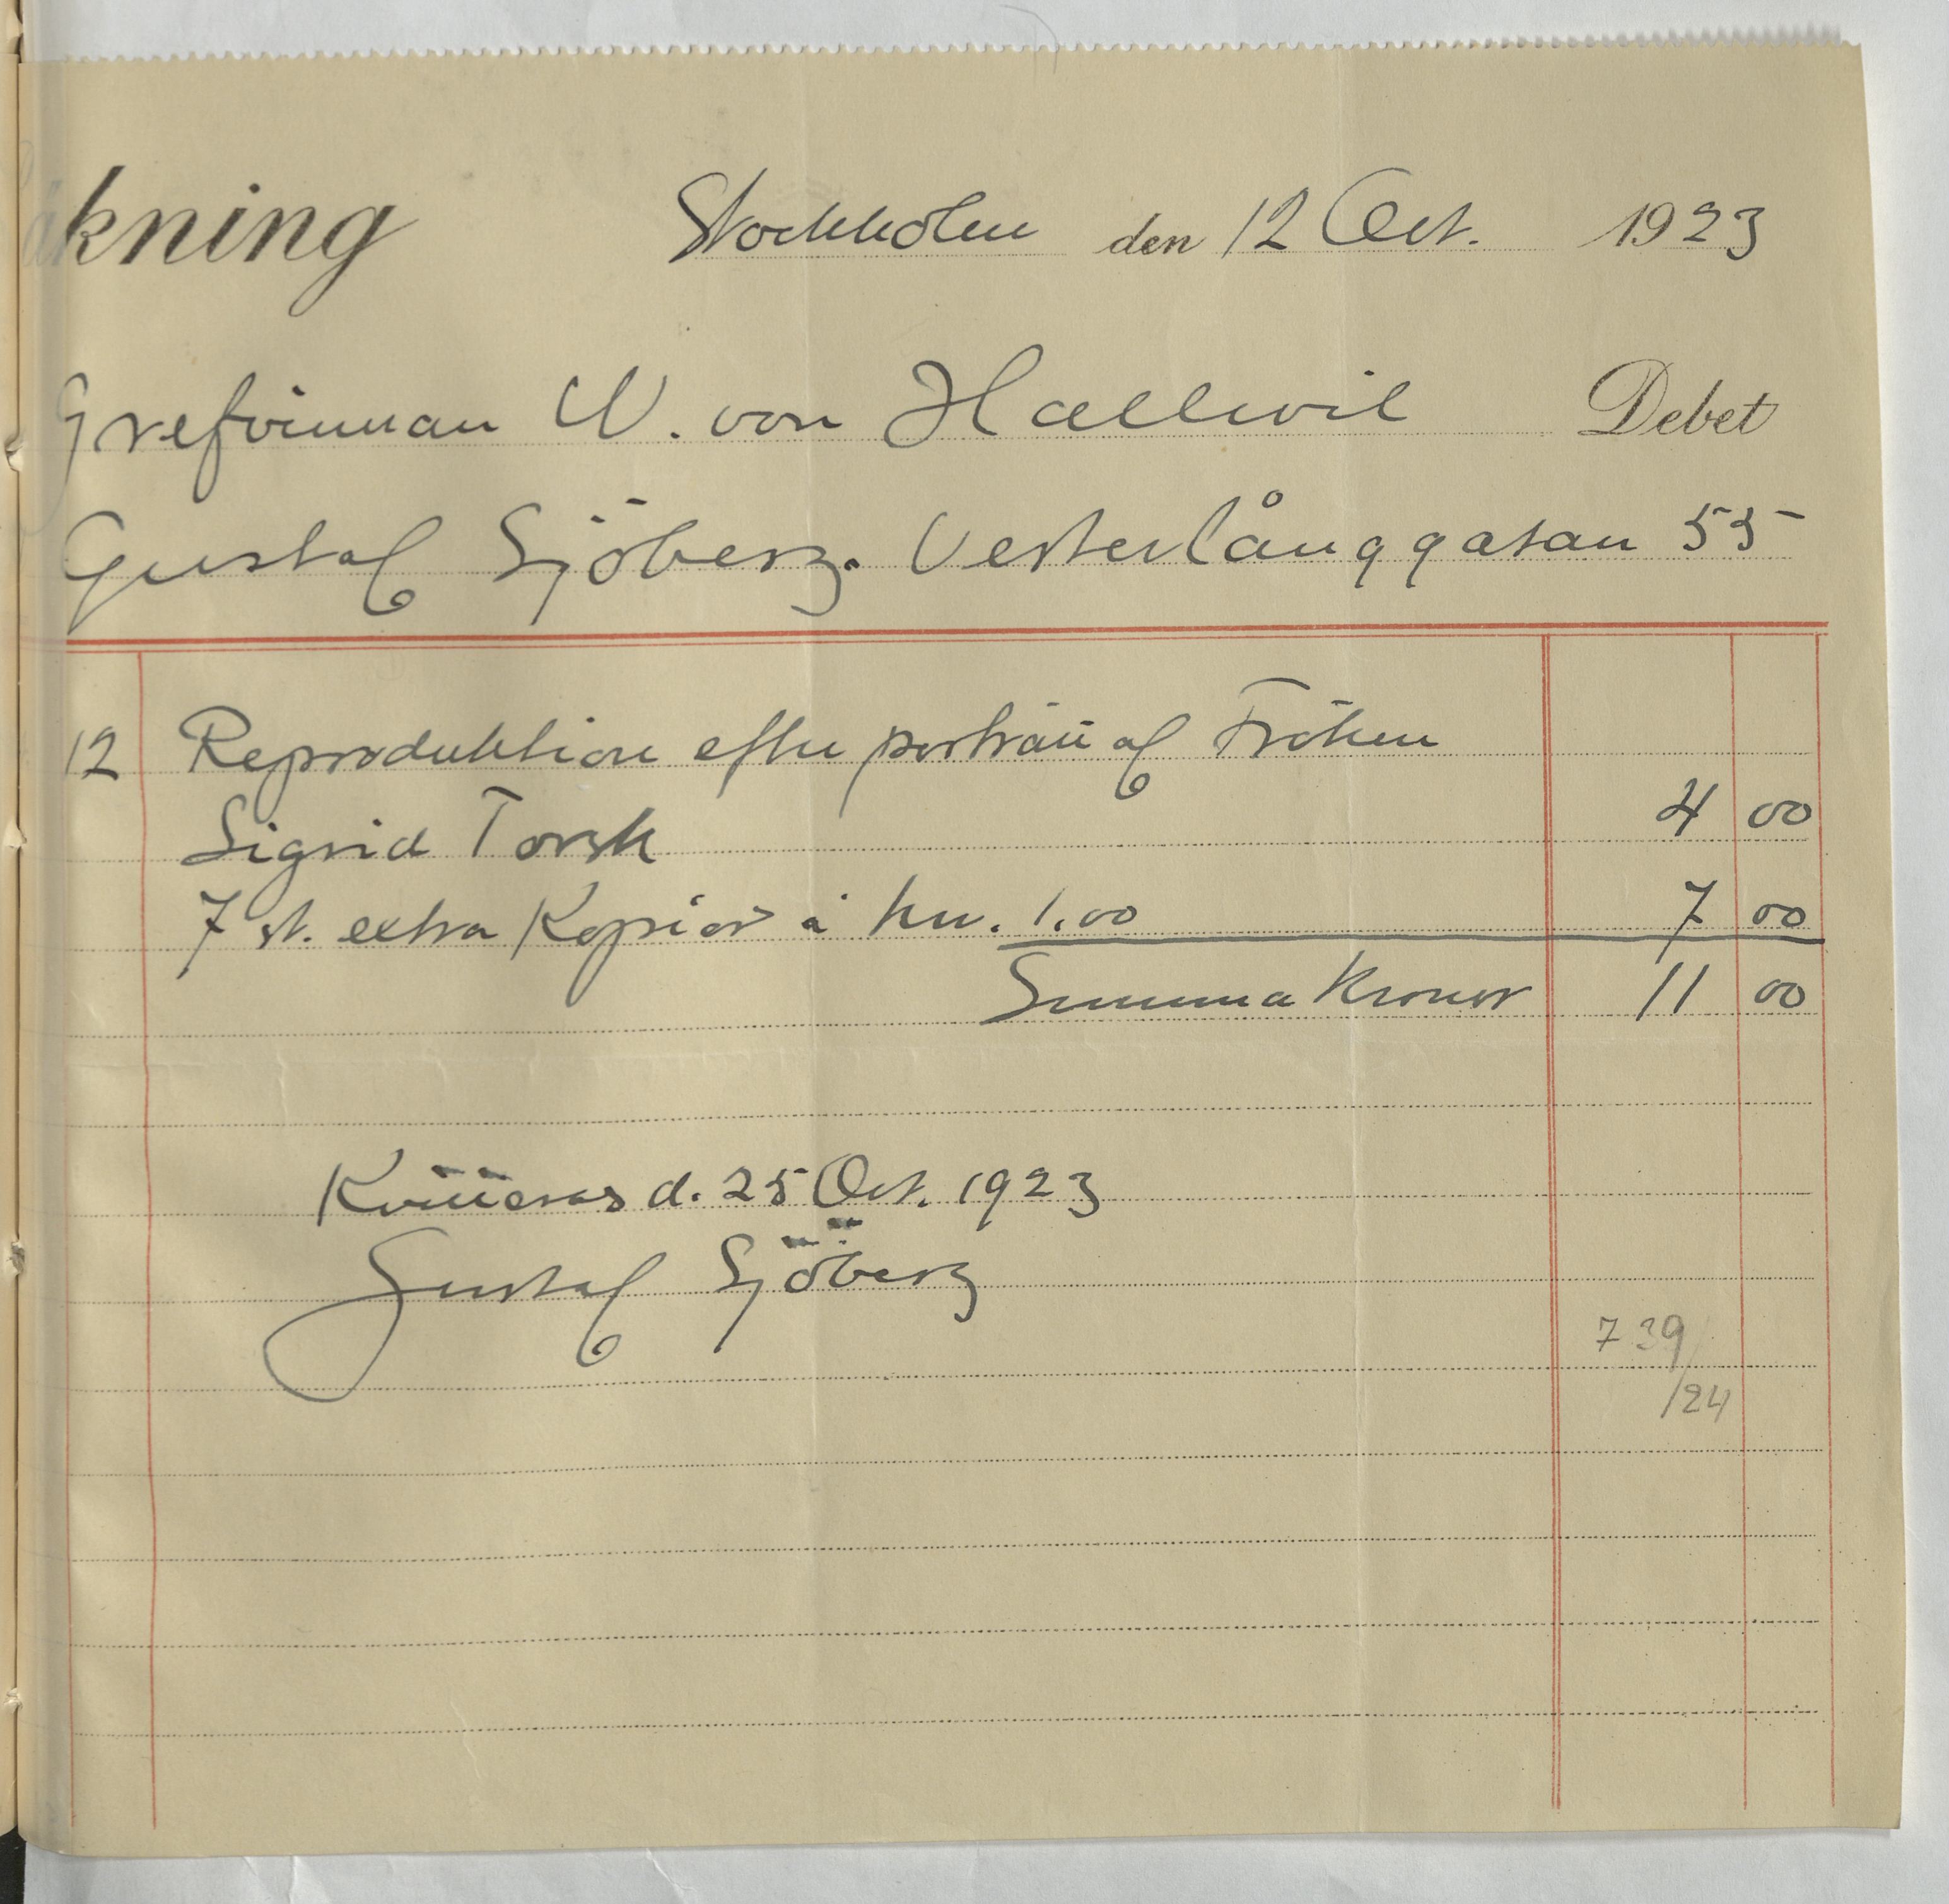 Räkning Stockholm den 12 Oct. 1923
Grefvinnan W. von Hallwil Debet
Gustaf Sjöberg. Vesterlånggatan 55
12 Reproduktion efter porträtt af Fröken
Sigrid Torsk 4 00
7 st. extra Kopior à kr. 1.00 7 00
Summa Kronor 11 00
Kvitteras d. 25 Oct. 1923
Gustaf Sjöberg
739
/24